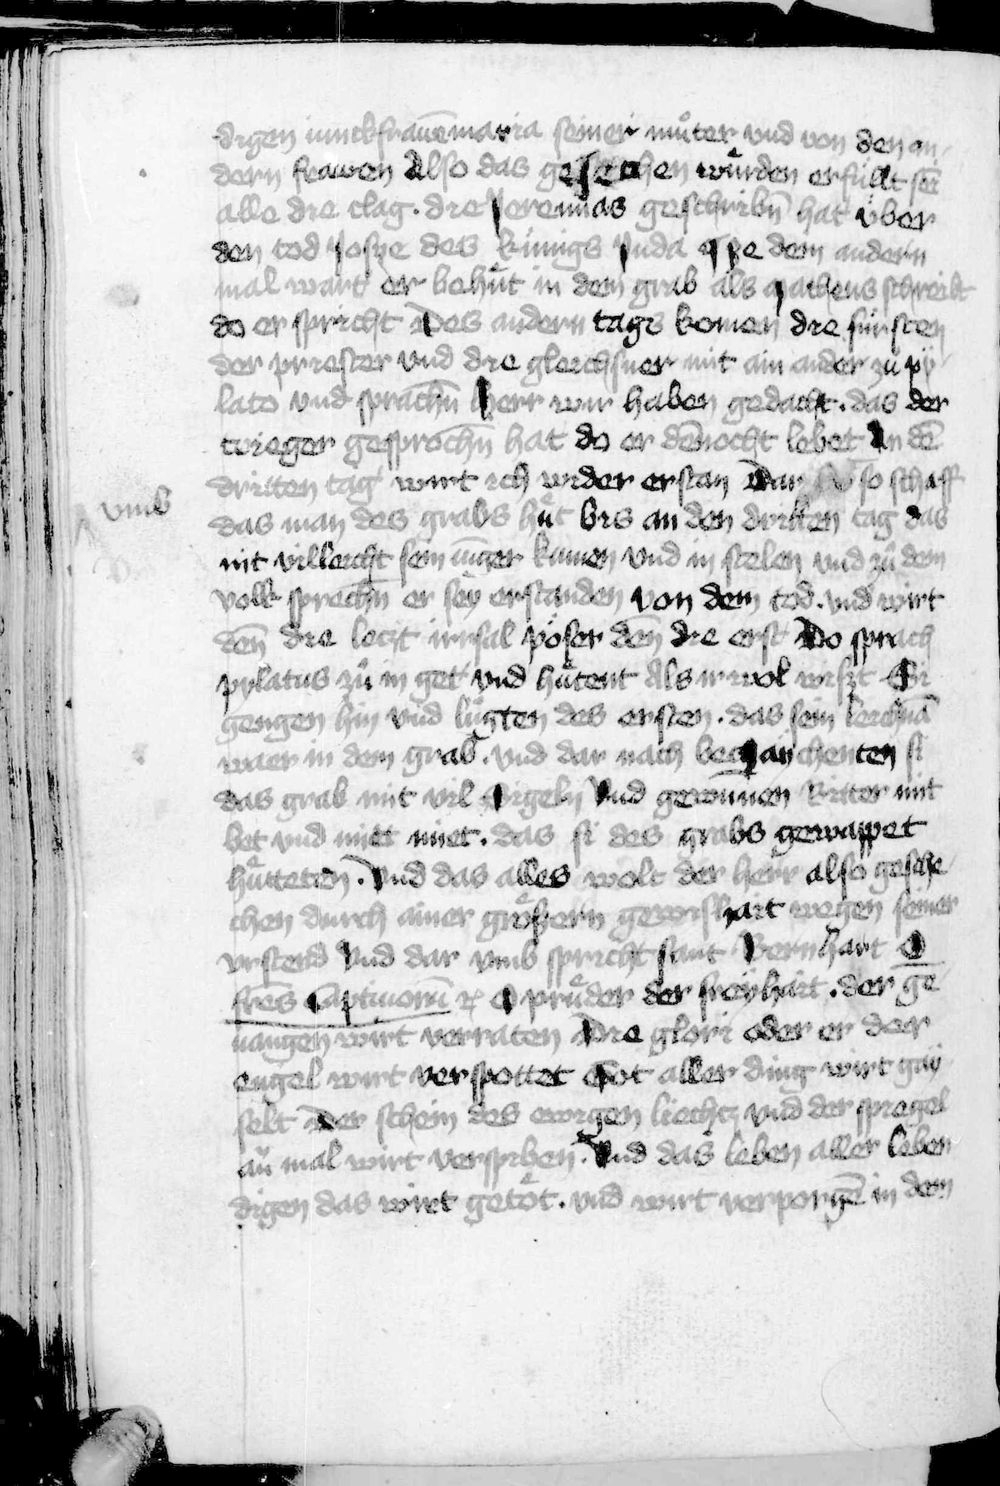 digen iunckfrauē maria seiner muͦter vnd von den an-
dern frawen Also das gesechen wuͤrden erfüllt sei
alle die clag. die Jeremias geschribn̄ hat über
den tod Josye des künigs Juda Zue dem andern
mal wart er behuͤt in dem grab als matheus schreibt
do er spricht Des andern tags komen die fürsten
der priester vnd die gleichsner mit ain ander zuͦ py-
lato vnd sprachn̄ Herr wir haben gedacht. das der
trieger gesprochn̄ hat do er dēnocht lebet An dē
dritten tag wirt ich wider erstan Dar so schaff
vmb
das man des grabs huͤt bis an den dritten tag das
nit villeicht sein iūnger kumen vnd in stelen vnd zuͦ dem
volk sprechn̄ er sey erstanden von dem tod. vnd wirt
den̄ die lecʒt irrsal poͤser den̄ die erst Do sprach
pylatus zuͦ in get vnd huͤtent Als ir wol wisʒt Si
gengen hin vnd luͦgten des ersten. das sein leichnā
waer in dem grab. vnd dar nach bezaichenten si
das grab mit vil Sigeln Vnd gewunnen Ritter mit
bet vnd mitt miet. das si des grabs gewappet
huͤtteten. Vnd das alles wolt der herr also gesche-
chen durch ainer groͤssern gewishait wegen seiner
vrstend Vnd dar vmb spricht sant Bernhart O
fres̄ Captiuorū ꝛc̄ O pruͤder der freyhait. der ge-
uangen wirt verraten Die glori oder er der
engel wirt verspottet Got aller ding wirt gay-
selt Der schein des ewigen liechtʒ vnd der spiegel
aū mal wirt verspiben. Vnd das leben aller leben-
digen das wirt getoͤt. vnd wirt verporgē in dem